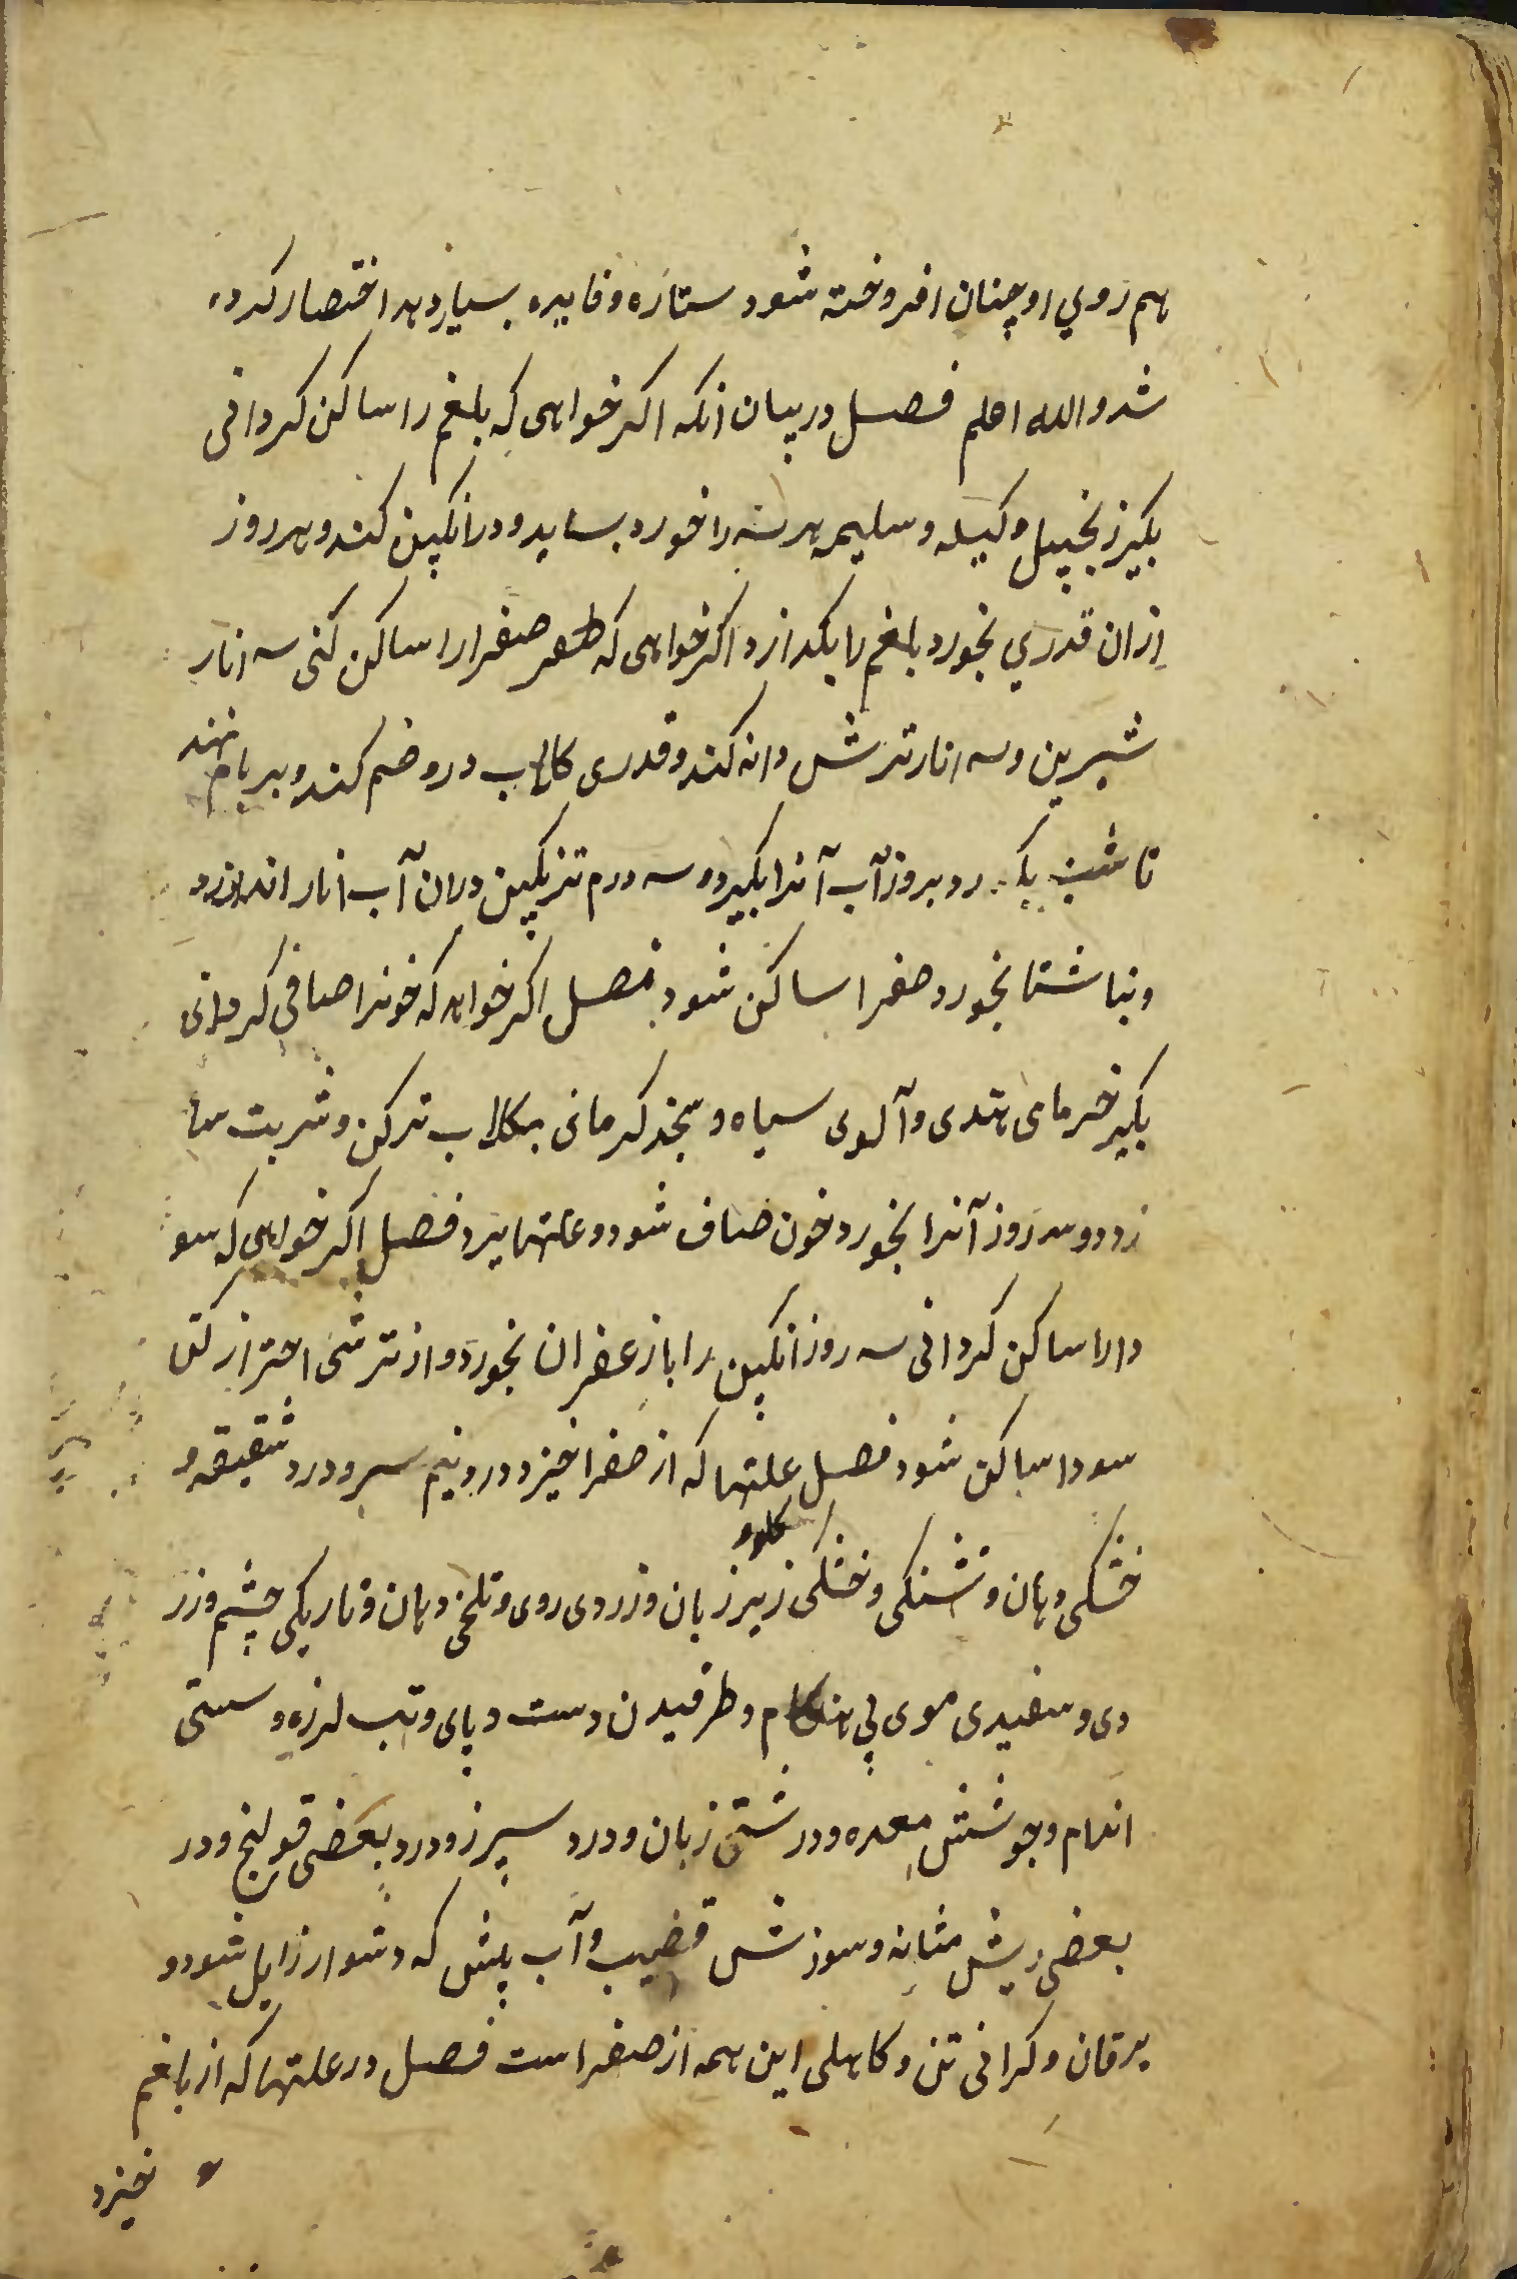 هم روي او چنان افروخته شود ستاره و فایده بسیار دهد اختصار کرده
شد والله اعلم فصل در بیان انکه اکر خواهی که بلغم را ساکن کردانی
بکیر زنجبیل و کیله و سلیمه هر سه را خورد بساید و در انکبین کند و هر روز
ازان قدري بخورد بلغم را بکدازد اکر خواهی که صفرا را ساکن کنی سه انار
شیرین و سه انار ترش دانه کند و قدری کلاب درو ضم کند و بر بام نهند
تا شب و بروز آب آنرا بکیرد و سه درم ترنکبین دران آب انار اندازد
و بناشتا بخورد صفرا ساکن شود فصل اکر خواهد که خونرا صافی کردانی
بکیر خرمای هندی و آلوی سیاه و سنجد کرمانی بکلاب ترکن و شربت سا
زد و سه روز آنرا بخورد خون صاف شود و علتها ببرد فصل اکر خواهی که سو
دارا ساکن کردانی سه روز انکبین را با زعفران بخورد و از ترشی احتراز کن
سودا ساکن شود فصل علتها که از صفرا خیزد درد نیم سر و درد شقیقه و
خشکی دهان و تشنکی و خشکی کلو و زیر زبان و زردی روی و تلخی دهان و تاریکی چشم و زر
دی و سفیدی موی بی هنکام و طرقیدن دست و پای و تب لرزه و سستی
اندام و جوشش معده و درشتی زبان و درد سپرز و درد بعضی قولنج و در
بعضی ریش مثانه و سوزش قضیب و آب پشت که دشوار زایل شود و
یرقان و کرانی تن و کاهلی این همه از صفراست فصل در علتها که از بلغم
خیزد